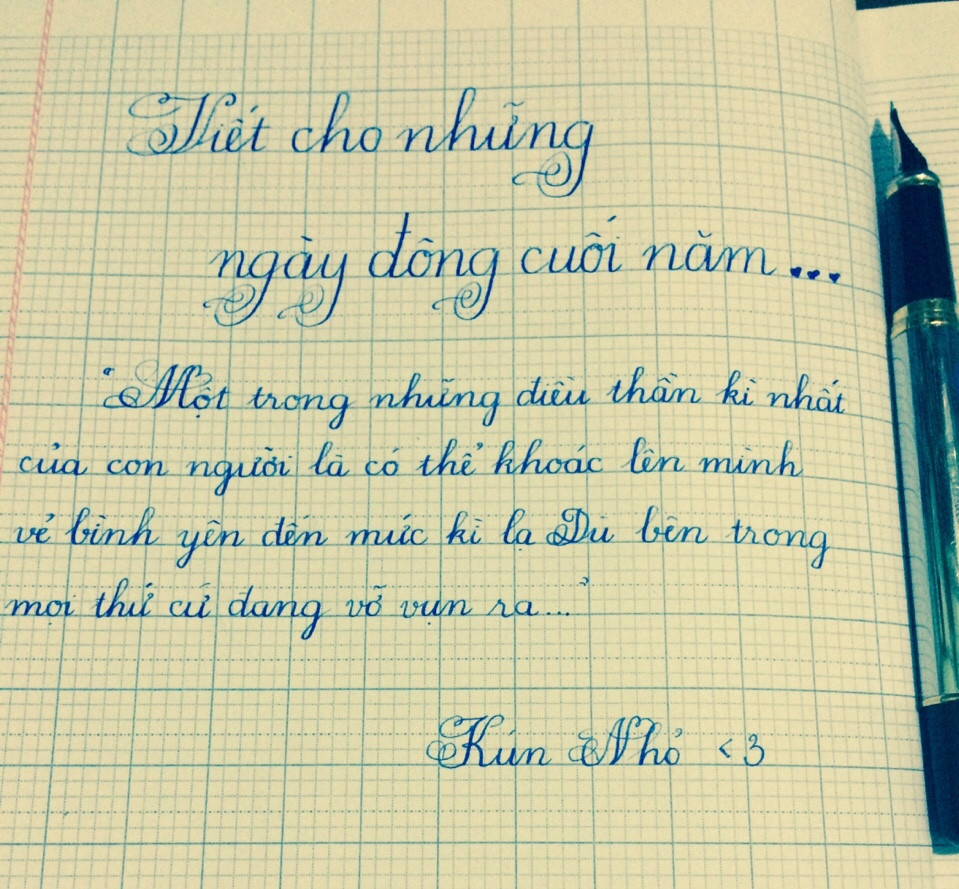 Viết cho những
ngày đông cuối năm...
"Một trong những điều thần kì nhất
của con người là có thể khoác lên mình
vẻ bình yên đến mức kì lạ Dù bên trong
mọi thứ cứ đang vỡ vụn ra..."
Kún Nhỏ <3